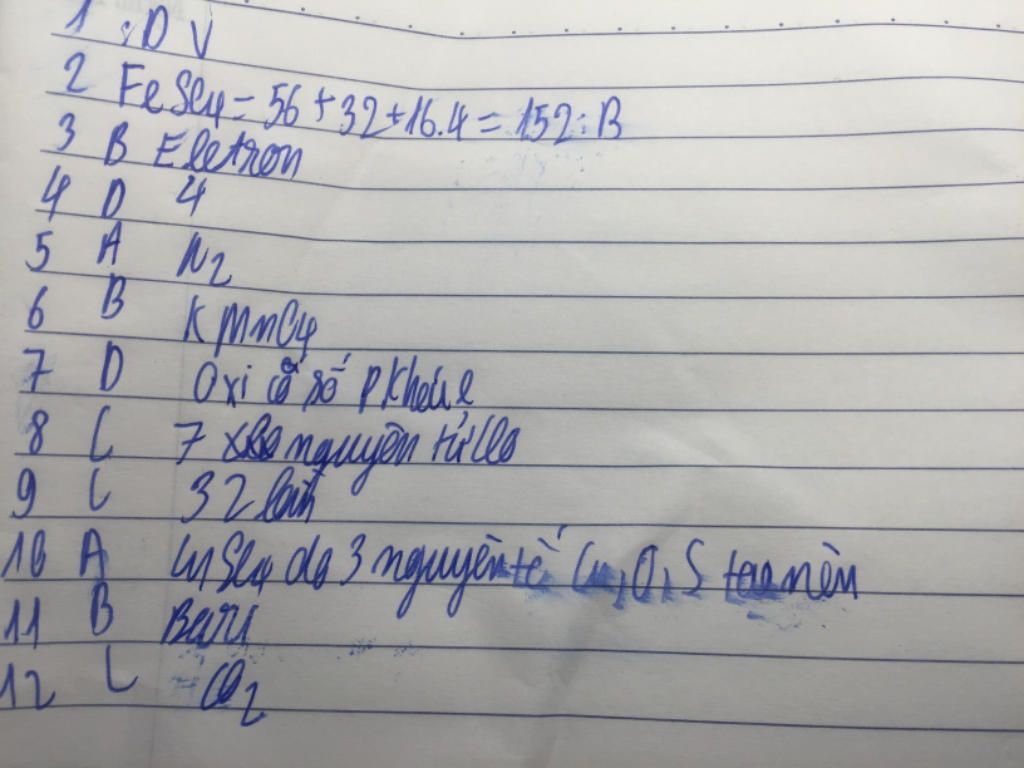 1 : D V
2 FeSO4 = 56 + 32 + 16.4 = 152 : B
3 B Eletron
4 D 4
5 A N2
6 B KMnO4
7 D Oxi có số p khác e
8 C 7 nguyên tử
9 C 32 lần
10 A CuSO4 do 3 nguyên tố Cu, O, S tạo nên
11 B Bari
12 C CO2